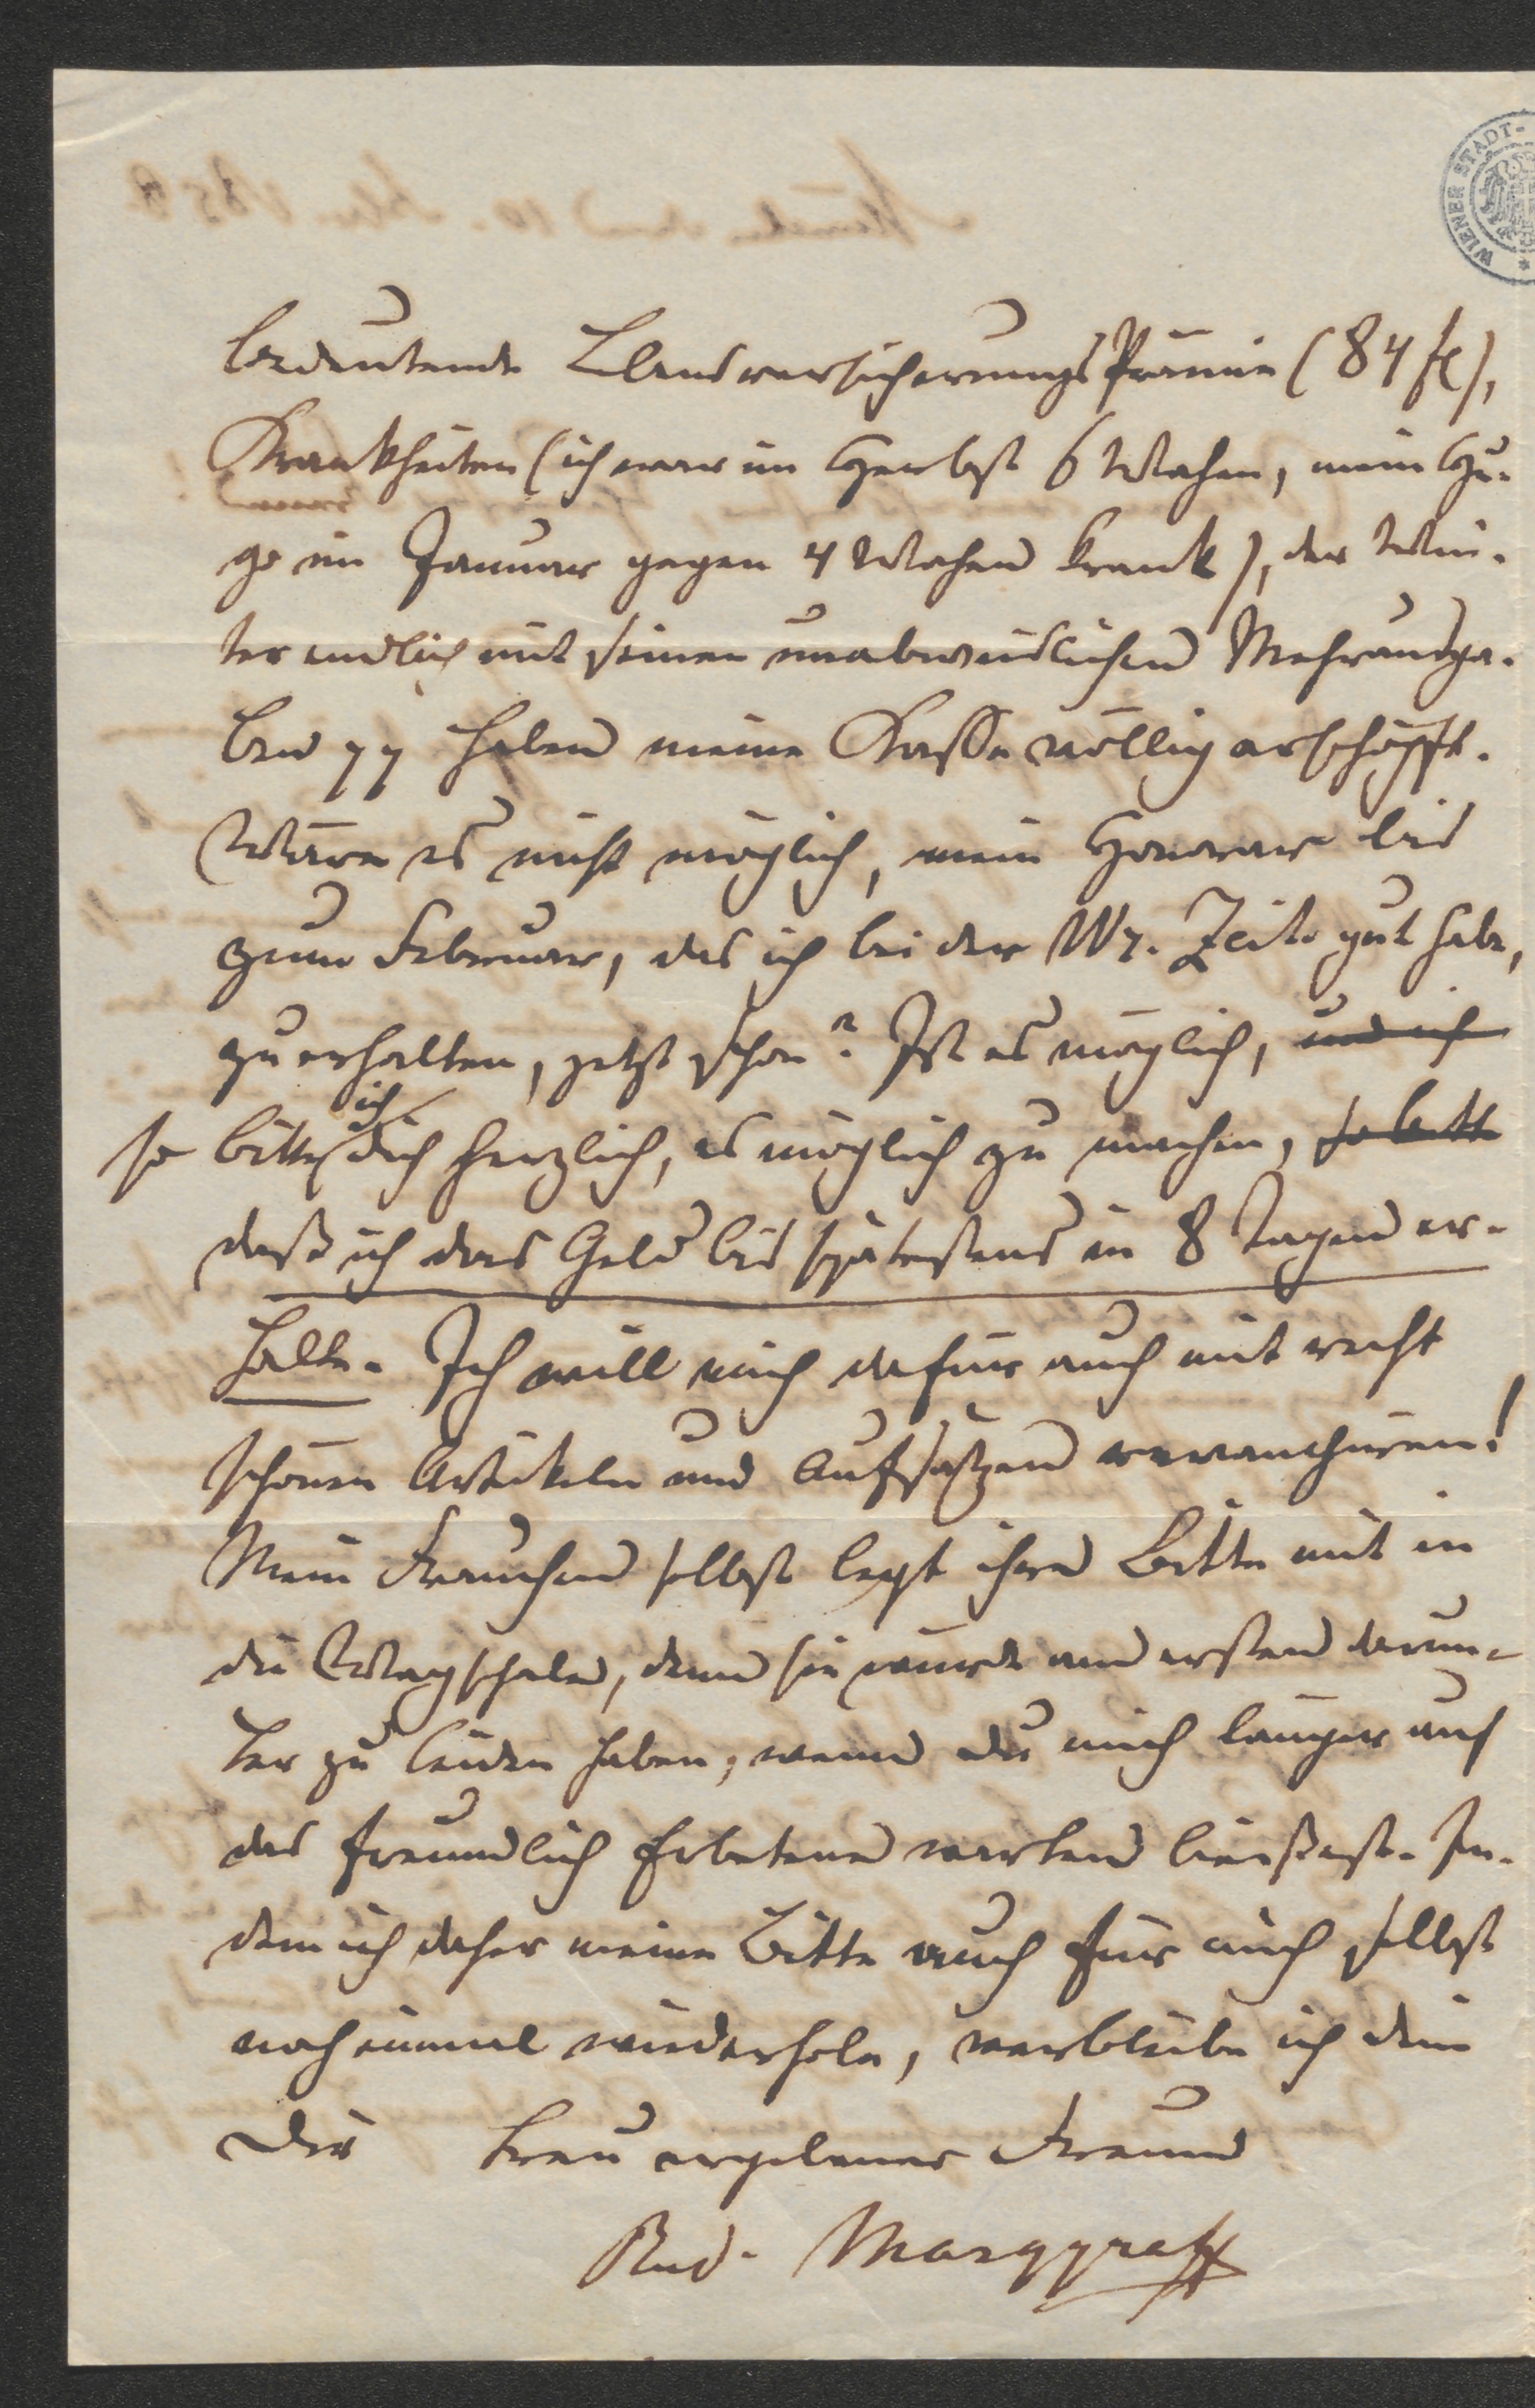 WIENER STADT-
bedeutende LebensversicherungsPrämie (84 fl),
Krankheiten (ich war im Herbst 6 Wochen, mein Hu-
go im Januar gegen 4 Wochen krank), der Win-
ter endlich mit seinen unabweislichen Mehrausga-
ben pp haben meine Kasse völlig erschöpft.
Wäre es nicht möglich, mein Honorar bis
zum Februar, das ich bei der Wr. Zeit. gut habe,
zu erhalten, jetzt schon? Ist es möglich, und ich
so bitte ich dich herzlich, es möglich zu machen, so bitte
daß ich das Geld bis spätestens in 8 Tagen er-
halte. Ich will mich dafür auch mit recht
schönen Artikeln und Aufsätzen revanchiren!
Mein Frauchen selbst legt ihre Bitte mit in
die Wagschale, denn sie würde am ersten darun-
ter zu leiden haben, wenn du mich länger auf
das freundlich Erbetene warten ließest. In-
dem ich daher meine Bitte auch für mich selbst
noch einmal wiederhole, verbleibe ich dein
Dir treu ergebener Freund
Rud. Marggraff